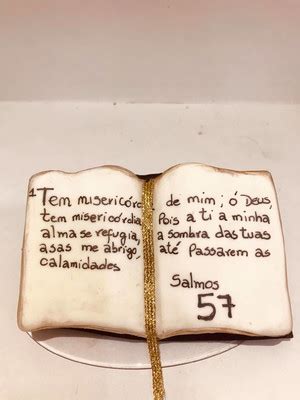 1 Tem misericórd de mim; ó Deus,
tem misericórdia, Pois a ti a minha
alma se refugia, a sombra das tuas
asas me abrigo, até Passarem as
calamidades
Salmos
57